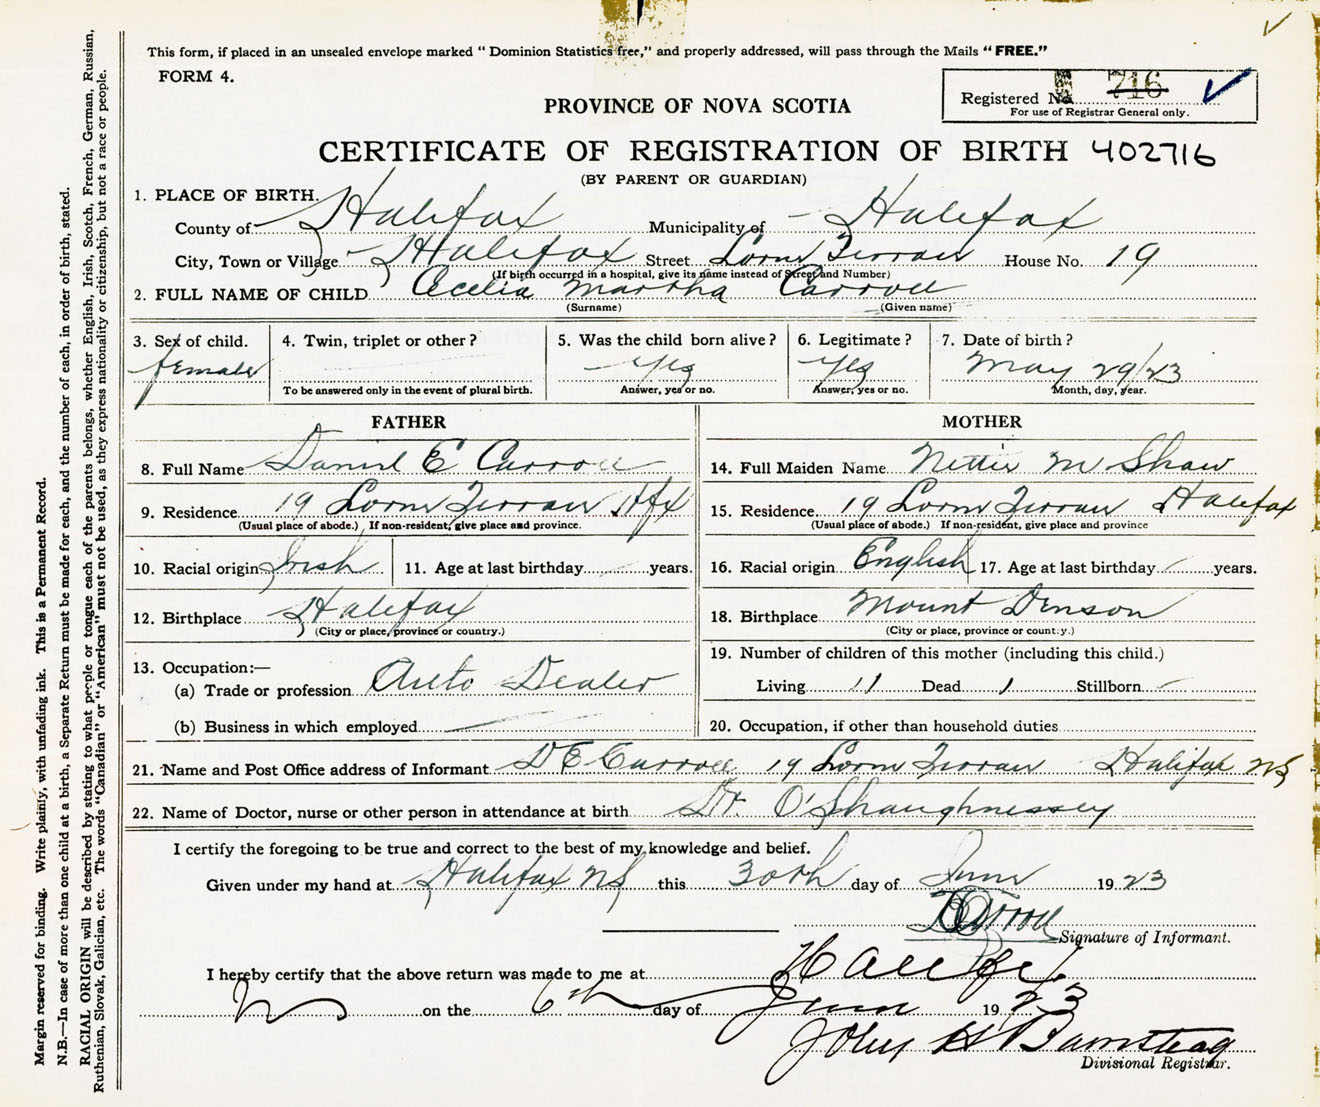 This form, if placed in an unsealed envelope marked "Dominion Statistics free," and properly addressed, will pass through the Mails "FREE."
FORM 4.
Registered No. 716
For use of Registrar General only.
PROVINCE OF NOVA SCOTIA
CERTIFICATE OF REGISTRATION OF BIRTH 402716
(BY PARENT OR GUARDIAN)
1. PLACE OF BIRTH.
County of Halifax Municipality of Halifax
City, Town or Village Halifax Street Lorne Terrace House No. 19
(If birth occurred in a hospital, give its name instead of Street and Number)
2. FULL NAME OF CHILD Cecelia Martha Carroll
(Surname) (Given name)
3. Sex of child. 4. Twin, triplet or other? 5. Was the child born alive? 6. Legitimate? 7. Date of birth?
female yes yes May 29/23
To be answered only in the event of plural birth. Answer, yes or no. Answer, yes or no. Month, day, year.
FATHER MOTHER
8. Full Name Daniel E Carroll 14. Full Maiden Name Nettie M Shaw
9. Residence 19 Lorne Terrace Hfx 15. Residence 19 Lorne Terrace Halifax
(Usual place of abode.) If non-resident, give place and province. (Usual place of abode.) If non-resident, give place and province
10. Racial origin Irish 11. Age at last birthday years. 16. Racial origin English 17. Age at last birthday years.
12. Birthplace Halifax 18. Birthplace Mount Denson
(City or place, province or country.) (City or place, province or country.)
13. Occupation:— 19. Number of children of this mother (including this child.)
(a) Trade or profession Auto Dealer Living 11 Dead 1 Stillborn –
(b) Business in which employed 20. Occupation, if other than household duties
21. Name and Post Office address of Informant D E Carroll 19 Lorne Terrace Halifax NS
22. Name of Doctor, nurse or other person in attendance at birth Dr. O'Shaughnessey
I certify the foregoing to be true and correct to the best of my knowledge and belief.
Given under my hand at Halifax NS this 30th day of June 1923
Carroll
Signature of Informant.
I hereby certify that the above return was made to me at Halifax
NS on the 6th day of June 1923
John H Barnstead
Divisional Registrar.
Margin reserved for binding. Write plainly, with unfading ink. This is a Permanent Record.
N.B.—In case of more than one child at a birth, a Separate Return must be made for each, and the number of each, in order of birth, stated.
RACIAL ORIGIN will be described by stating to what people or tongue each of the parents belongs, whether English, Irish, Scotch, French, German, Russian,
Ruthenian, Slovak, Galician, etc. The words "Canadian" or "American" must not be used, as they express nationality or citizenship, but not a race or people.